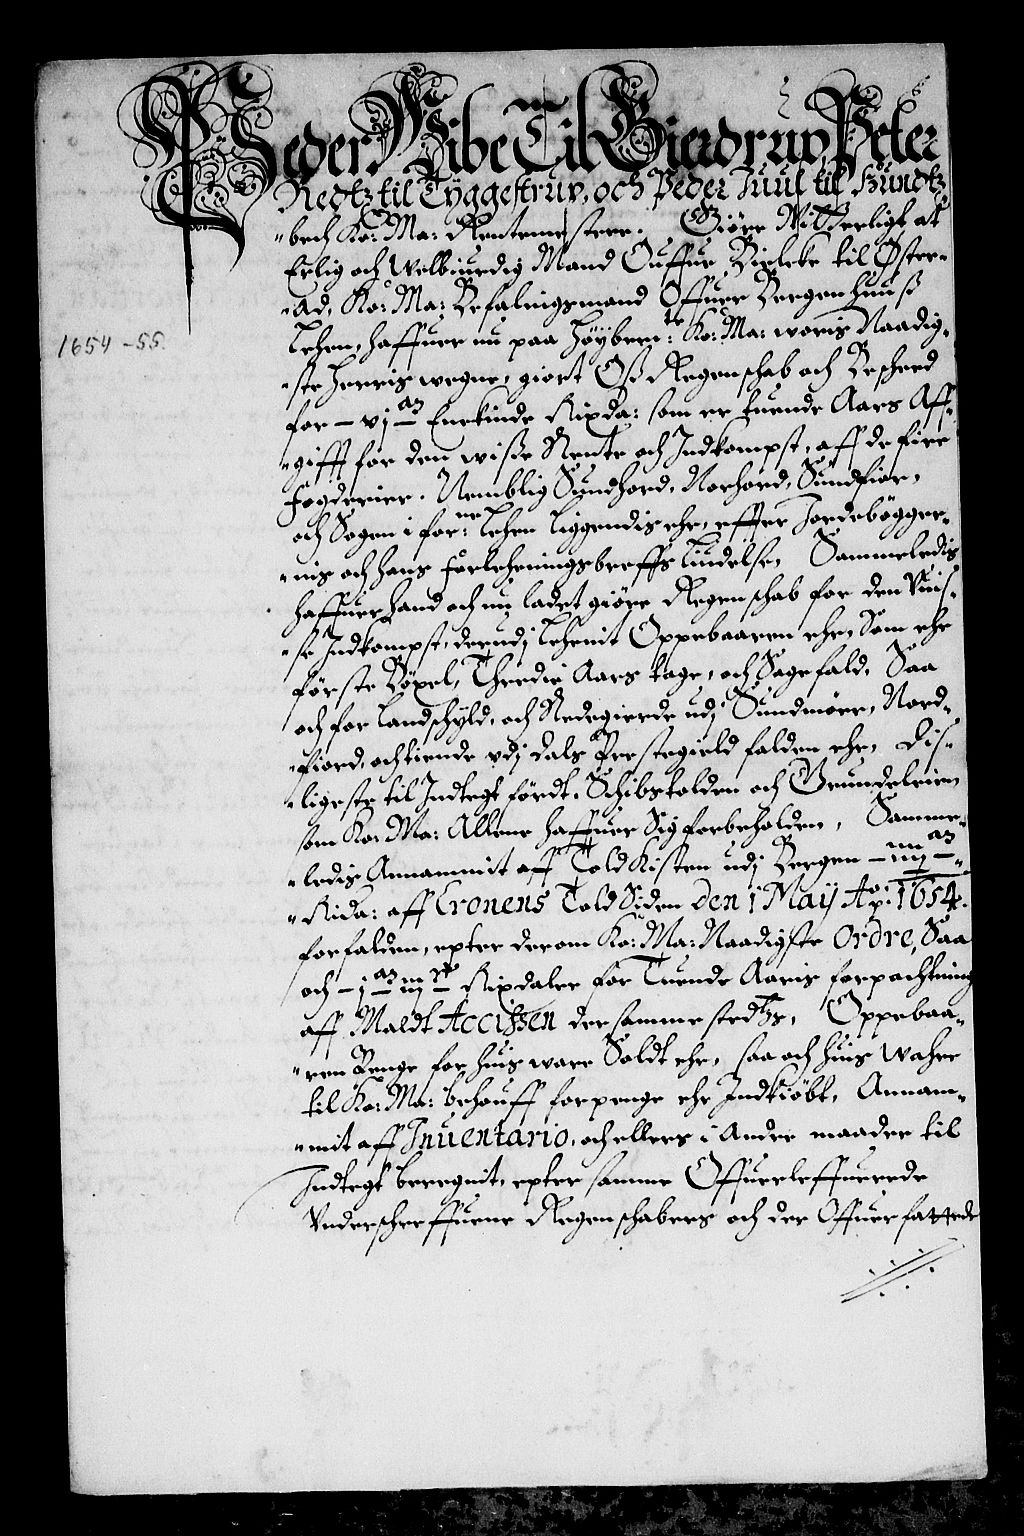 Peder Wibe Til Gierdrup, Peter
Redtz til Tyggestrup, och Peder Juul til Hundtz-
"bech Ko: Ma: Rentemestere. Giøre Witterligt at
Erlig och Welbiurdig Mand Ouffue Bielcke til Øster-
"ad, Ko: Ma: Befalingsmand Offuer Bergenhuus
Lehen, haffuer nu paa Høybem:te Ko: Ma: woris Naadig-
"ste Herris wegne, giort Oss Regenschab och Bescheed
for – vj – Enckinde Rixda: som er tuende Aars Aff-
"gifft for den wisse Rente och Indkompst, aff de fire
Fogderier. Nemblig Sundhord, Norhord, Sundfior,
och Sogen i for:ne Lehen Liggendis ehr, effter Jordebøgger-
"nis och hans Forlehningsbreffs liudelse, Sammeledis
haffuer hand och nu ladet giøre Regenschab for den Vuis-
"se Indkompst, derudj Lehenit Oppebaaren ehr, Som ehr
Første Böxel, Thredie Aars tage, och Sagefald, Saa
och for Landschyld, och Redegierde udj Sundmöer, Nord-
"fiord, och tiende vdj Dals Prestegield falden ehr, Lis-
"ligeste til Indtegt fördt, Schibstolden och Grundeleien
som Ko: Ma: Allene haffuer Sig forbeholden, Samme-
"ledis Annammit aff Told Kisten udj Bergen – iiij –
"Rida: aff Cronens Told Siden den 1 Maij Ao: 1654.
forfalden, epter derom Ko: Ma: Naadigste Ordre, Saa
och – j iij – Rixdaler for Tuende Aaris forpachtning
aff Maldt Accissen der sammestedtz, Oppebaa-
"ren Penge for huis ware Soldt ehr, saa och huis wahre
til Ko: Ma: behouff for penge ehr Indkiöbt, Annam-
"mit aff Inuentario, och ellers i Andre maader til
Indtegt beregnit, epter samme Offuerleffuerede
Vnderschreffuene Regenschabers och der Offuer fattede
1654-55.